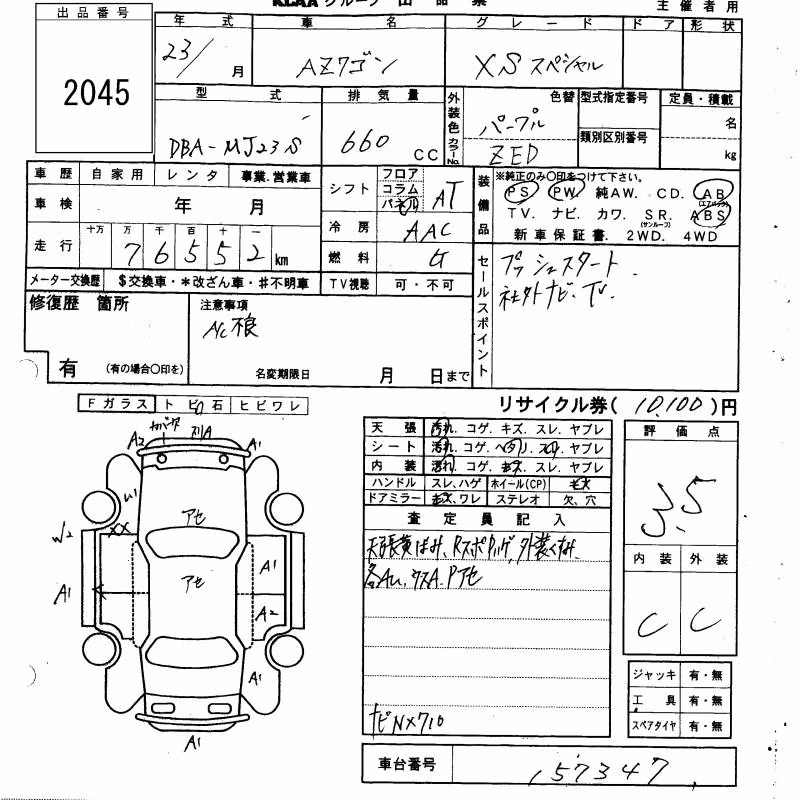 KCAA グループ 出品票
主催者用
出品番号
2045
年式 車名 グレード ドア 形状
23/ 月 AZワゴン XS スペシャル
型式 排気量 外装色 色替 型式指定番号 定員・積載
DBA-MJ23S 660 CC カラーNo. パープル ZED 類別区別番号 名 kg
車歴 自家用 レンタ 事業.営業車
シフト フロア コラム パネル AT
装備品 ※純正のみ〇印をつけて下さい。
PS PW 純AW. CD. AB (エアバッグ)
TV. ナビ カワ. SR. (サンルーフ) ABS
新車保証書. 2WD. 4WD
車検 年 月
冷房 AAC
走行 十万 万 千 百 十 一
7 6 5 5 2 km
燃料 G
メーター交換歴 $交換車・*改ざん車・#不明車
TV視聴 可・不可
セールスポイント
プッシュスタート
社外ナビ.TV.
修復歴 箇所
有 (有の場合〇印を)
注意事項
A/C不良
名変期限日 月 日まで
Fガラス トビ石 ヒビワレ
リサイクル券( 10,100 )円
天張 汚れ. コゲ. キズ. スレ. ヤブレ
シート 汚れ. コゲ. ヘタリ. スレ. ヤブレ
内装 汚れ. コゲ. キズ. スレ. ヤブレ
ハンドル スレ、ハゲ ホイール(CP) 欠
ドアミラー キズ、ワレ ステレオ 欠、穴
評価点
3.5
内装 外装
C C
査定員記入
天張黄ばみ、
外装くすみ
各AU、
Pアセ
ナビNX710
A2 A A1
U1
アセ
XX
W2
アセ
A1
A1
A2
A1
A1
ジャッキ 有・無
工具 有・無
スペアタイヤ 有・無
車台番号 157347